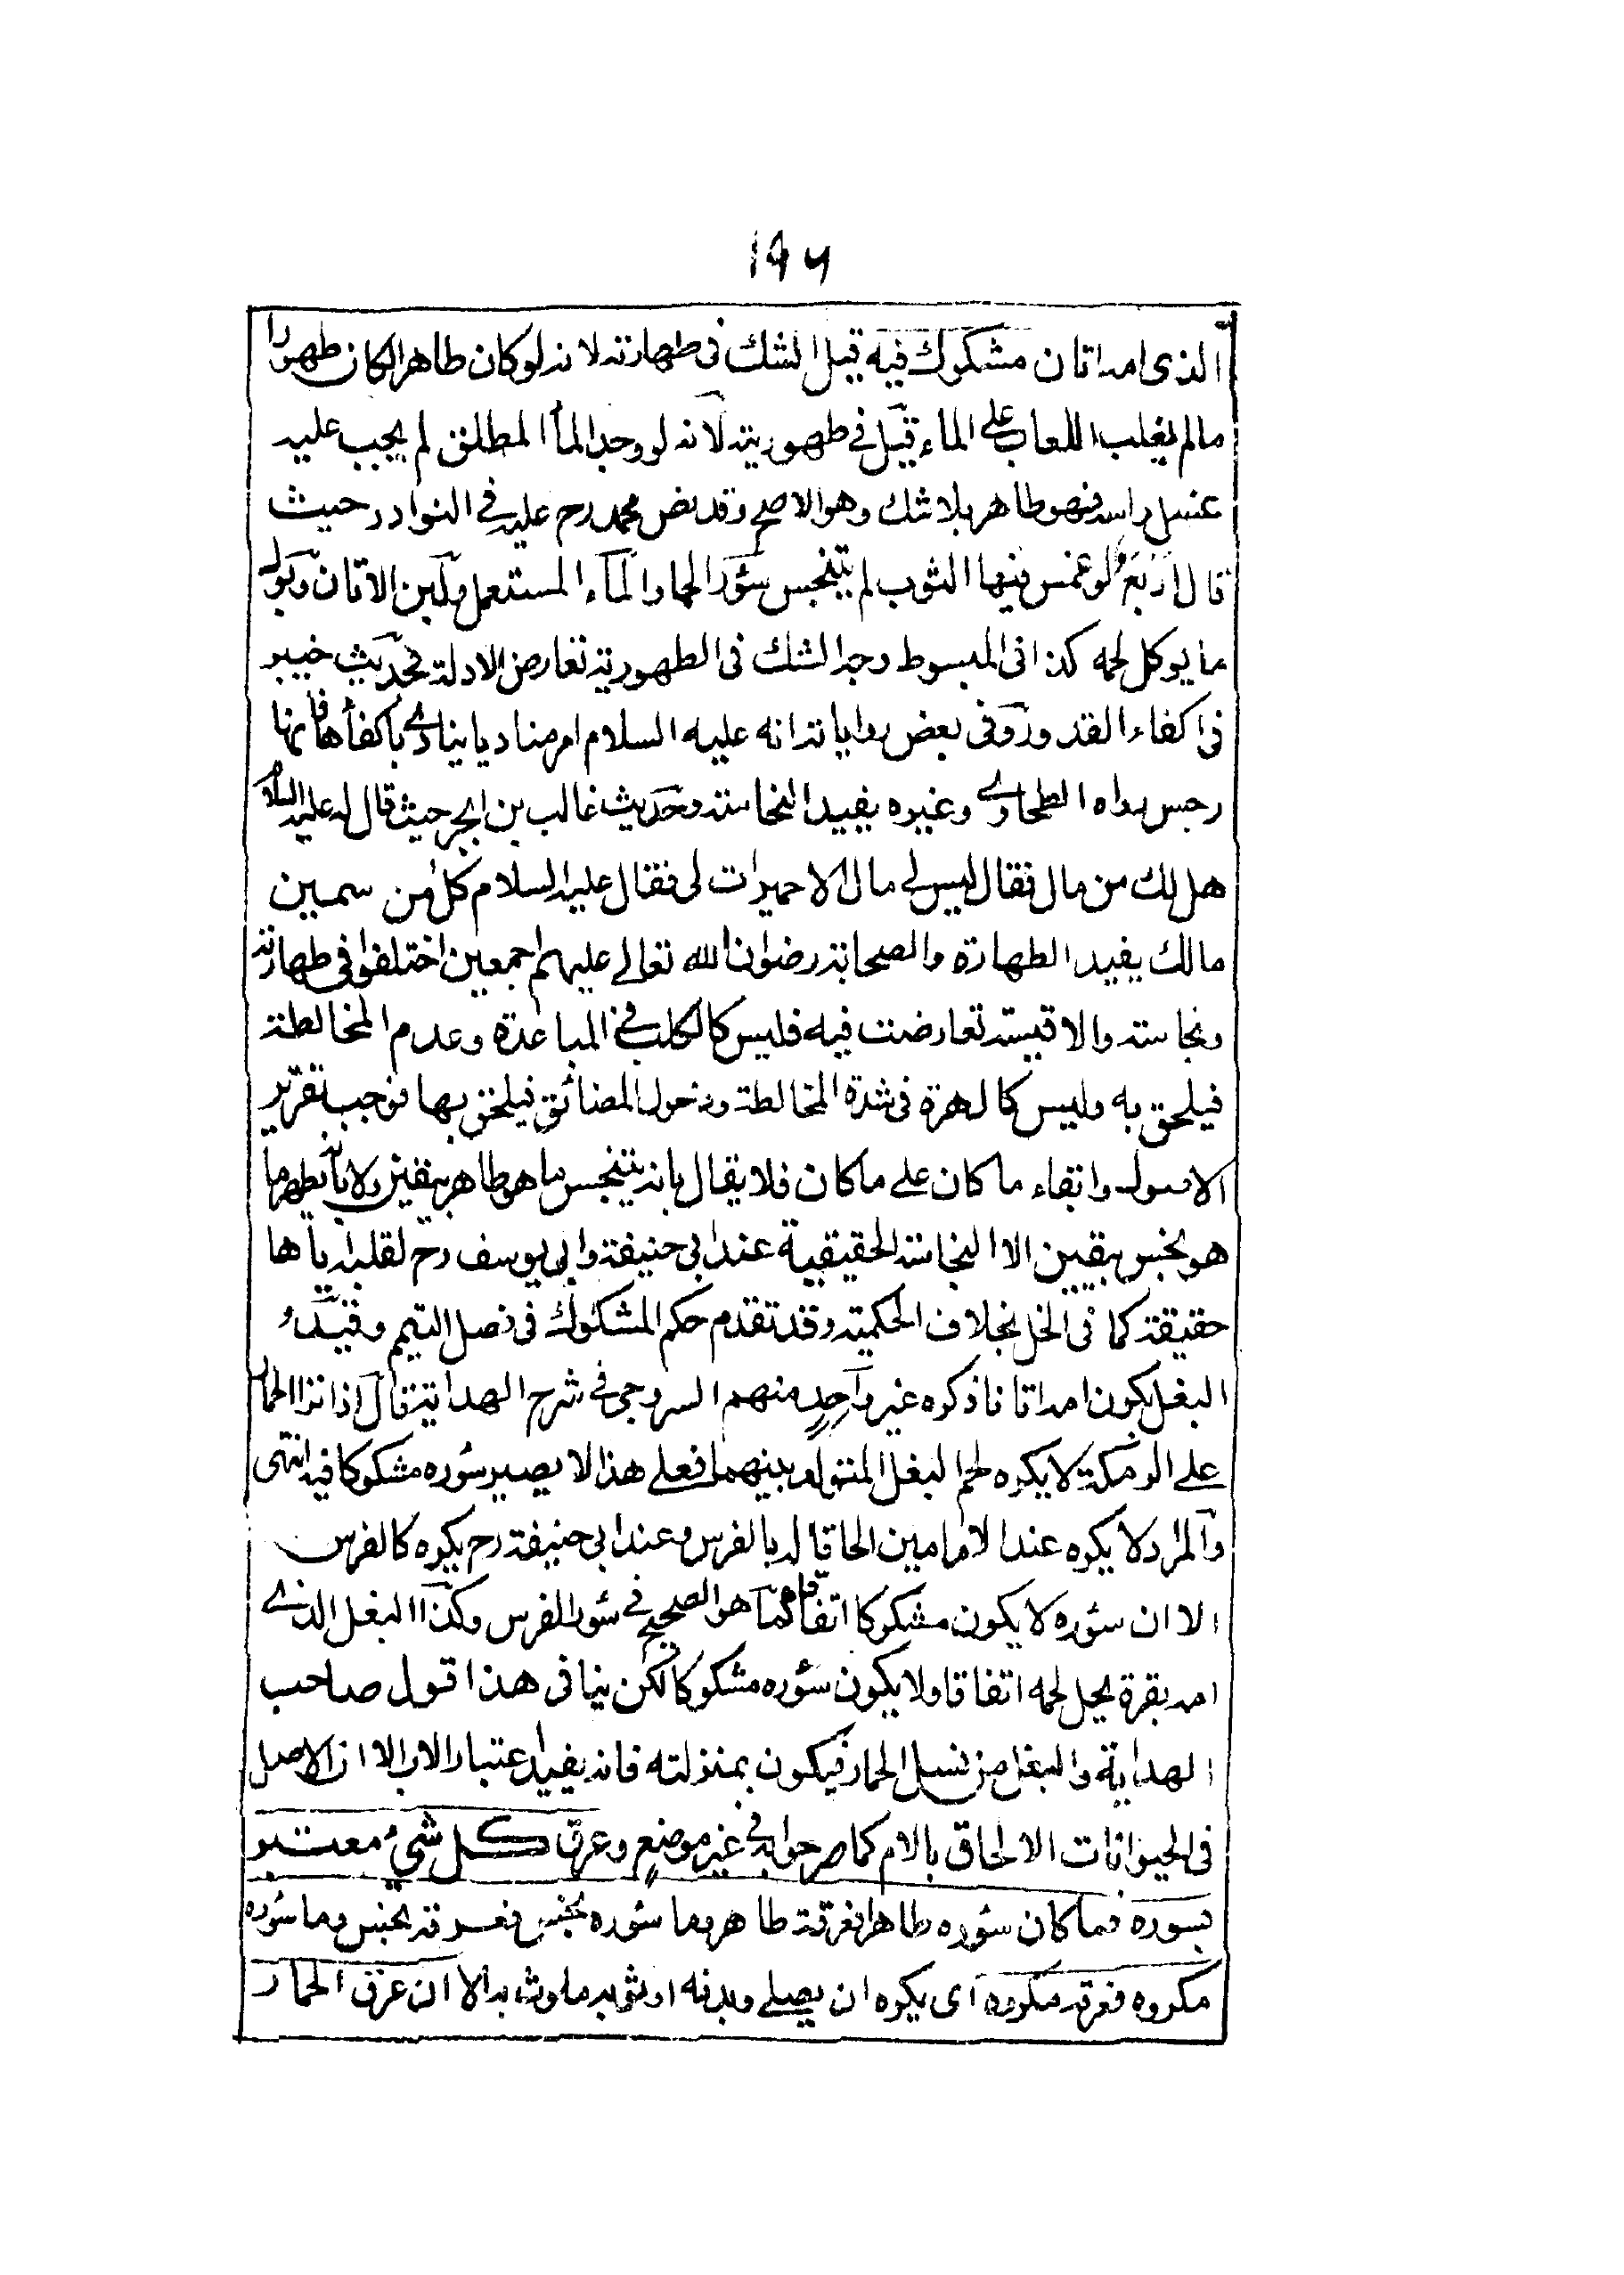 ۱۹۶
الذی امه اتان مشكوك فیه قیل الشك فی طهارته لانه لو كان طاهرا لكان طهورا
مالم یغلب اللعاب علی الماء قیل فی طهوریته لانه لو وجد الماء المطلق لم یجب علیه
غسل راسه فهو طاهر بلا شك وهو الاصح وقد نص محمد رح علیه فی النوادر حیث
قال اربع لو غمس فیها الثوب لم یتنجس سؤر الحمار والماء المستعمل ولبن الاتان وبول
ما یوكل لحمه كذا فی المبسوط وجه الشك فی الطهوریة تعارض الادلة فحدیث خیبر
فی اكفاء القدور وفی بعض روایاته انه علیه السلام امر منادیا ینادی باكفاءها فانها
رجس رواه الطحاوی وغیره یفید النجاسة وحدیث غالب بن ابجر حیث قال له علیه السلام
هل لك من مال فقال لیس لی مال الا حمیرات لی فقال علیه السلام كل من سمین
مالك یفید الطهارة والصحابة رضوان الله تعالی علیهم اجمعین اختلفوا فی طهارته
ونجاسته والاقیسة تعارضت فیه فلیس كالكلب فی المباعدة وعدم المخالطة
فیلحق به ولیس كالهرة فی شدة المخالطة ودخول المضائق فیلحق بها فوجب تقریر
الاصول وابقاء ما كان علی ما كان فلا یقال بانه یتنجس ما هو طاهر بیقین ولا بانه یطهر ما
هو نجس بیقین الا النجاسة الحقیقیة عند ابی حنیفة وابی یوسف رح لقلبه ایاها
حقیقة كما فی الخل بخلاف الحكمیة وقد تقدم حكم المشكوك فی فصل التیمم وقید
البغل بكون امه اتانا ذكره غیر واحد منهم السروجی فی شرح الهدایة قال اذا نزا الحمار
علی الرمكة لا یكره لحم البغل المتولد بینهما فعلی هذا لا یصیر سؤره مشكوكا فیه انتهی
والمراد لا یكره عند الامامین الحاقا له بالفرس وعند ابی حنیفة رح یكره كالفرس
الا ان سؤره لا یكون مشكوكا اتفاقا كما هو الصحیح فی سؤر الفرس وكذا البغل الذی
امه بقرة یحل لحمه اتفاقا ولا یكون سؤره مشكوكا لكن ینافی هذا قول صاحب
الهدایة والبغل من نسل الحمار فیكون بمنزلته فانه یفید اعتبار الاب الا ان الاصل
فی الحیوانات الالحاق بالام كما صرحوا به فی غیر موضع وعرق كل شیء معتبر
بسوره فما كان سؤره طاهرا فعرقه طاهر وما سؤره نجس فعرقه نجس وما سؤره
مكروه فعرقه مكروه ای یكره ان یصلی وبدنه او ثوبه ملوث به الا ان عرق الحمار